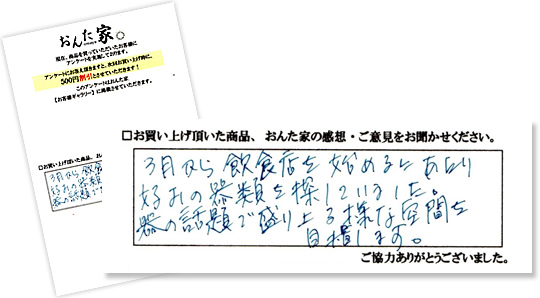 おんた家。
現在、商品を買っていただいたお客様に
アンケートを実施しております。
アンケートにお答え頂きますと、次回お買い上げ時に、
500円割引とさせていただきます!
このアンケートはおんた家
【お客様ギャラリー】に掲載させていただきます。
□お買い上げ頂いた商品、おん
3月から飲食
好みの器類
器の話題で
□お買い上げ頂いた商品、おんた家の感想・ご意見をお聞かせください。
3月から飲食店を始めるにあたり
好みの器類を探していました。
器の話題で盛り上る様な空間を
目指します。
ご協力ありがとうございました。